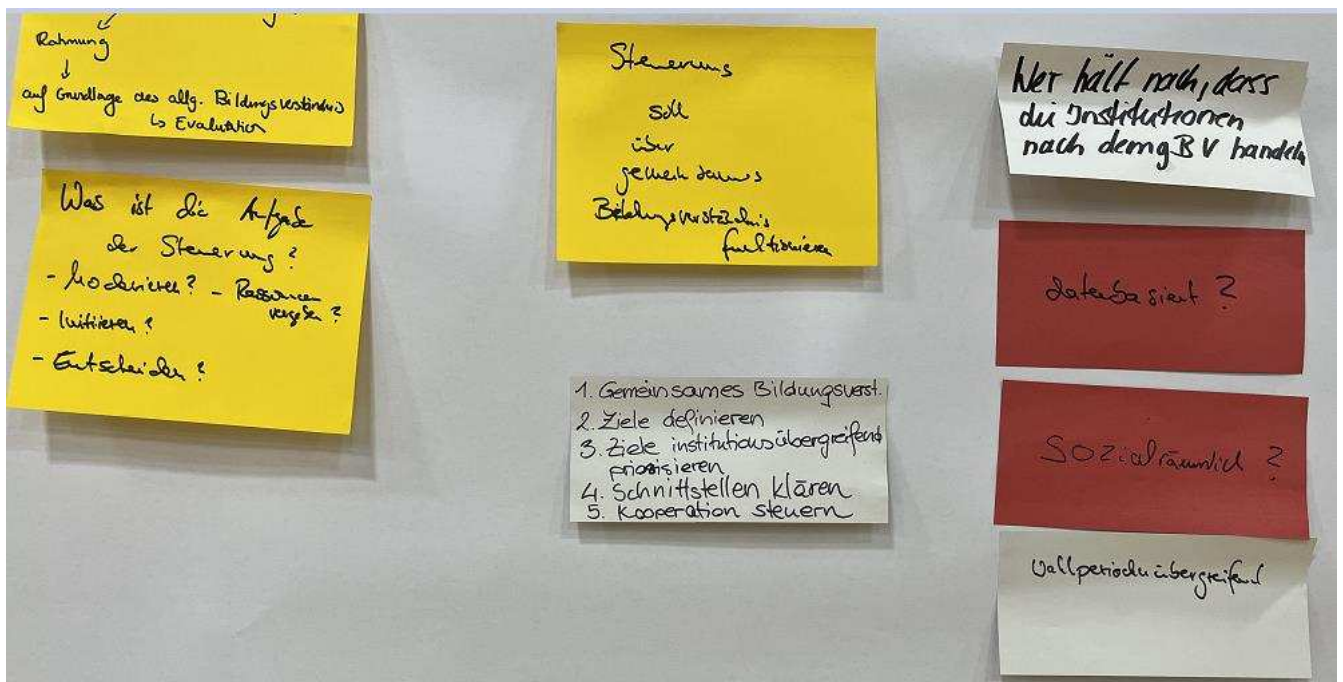 Rahmung
↓
auf Grundlage des allg. Bildungsverständnis
↳ Evaluation
Was ist die Aufgabe
der Steuerung?
- Moderieren? - Ressourcen
vergeben?
- Initiieren?
- Entscheiden?
Steuerung
soll
über
gemeinsames
Bildungsverständnis
funktionieren
1. Gemeinsames Bildungsverst.
2. Ziele definieren
3. Ziele institutionsübergreifend
priorisieren
4. Schnittstellen klären
5. Kooperation steuern
Wer hält nach, dass
die Institutionen
nach dem gBV handeln
datenbasiert?
Sozialräumlich?
Wahlperiodenübergreifend